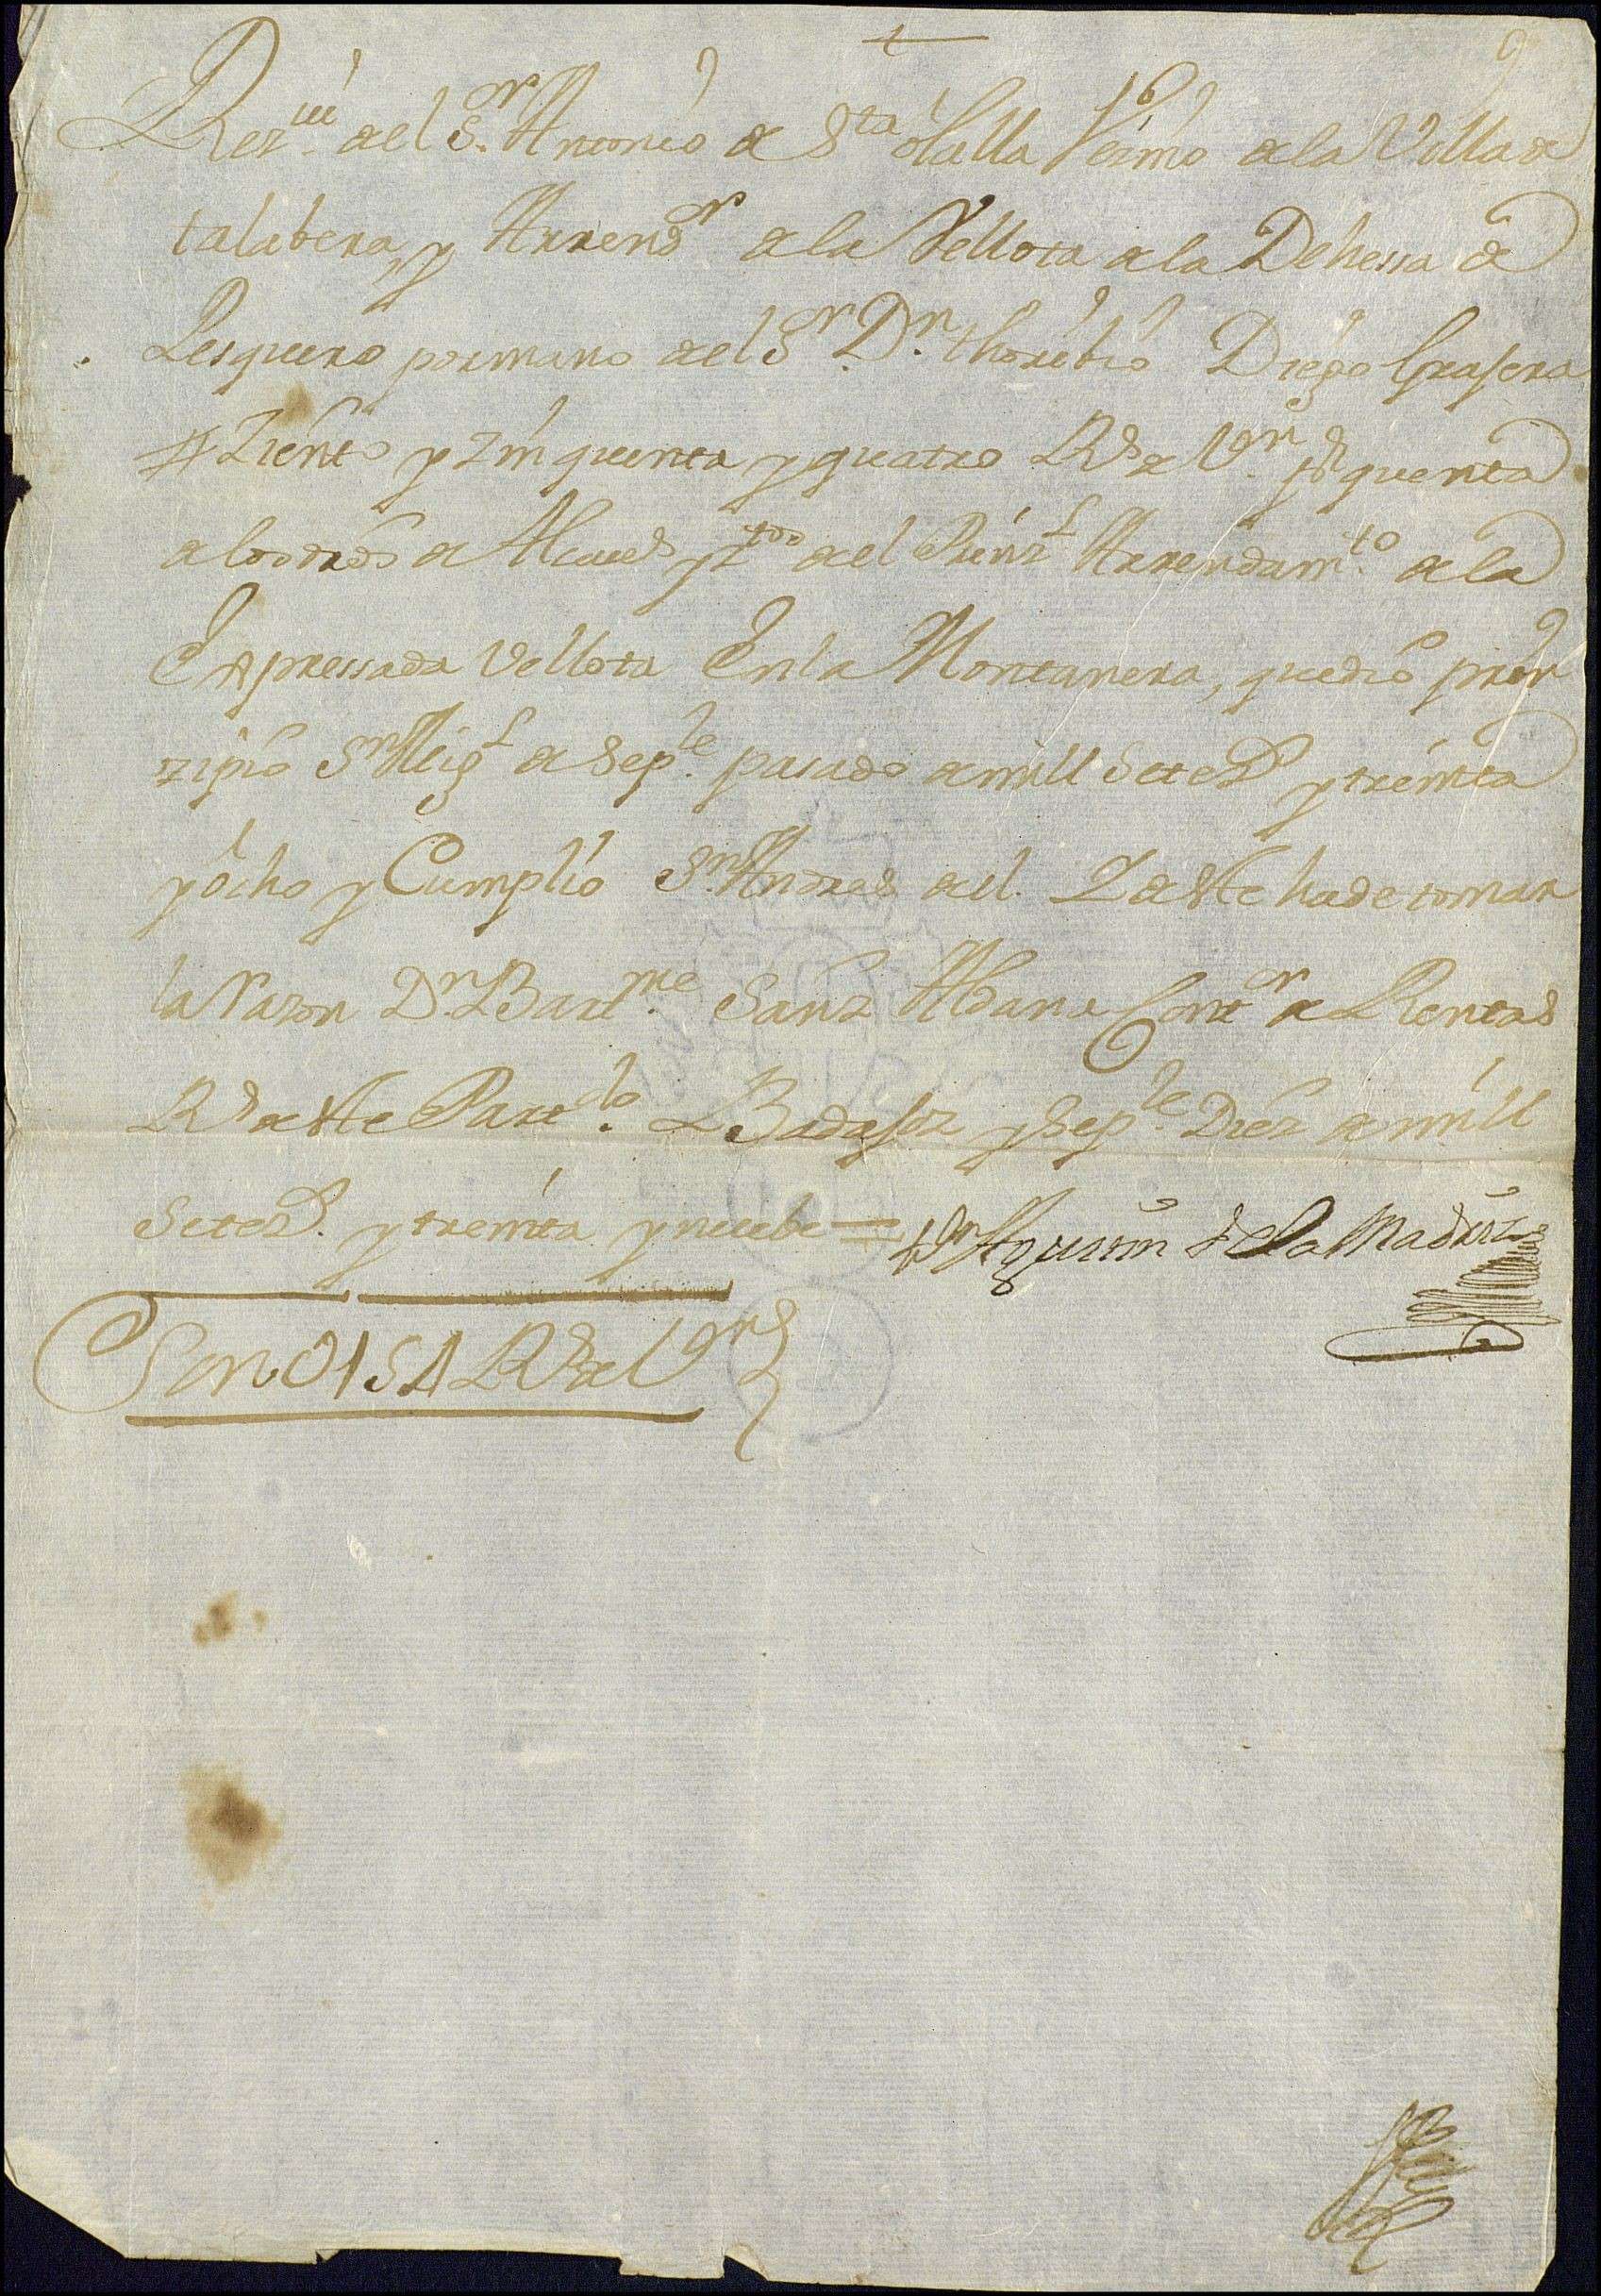 Rezui del Sr Antonio de Sta olalla Vezino de la Villa de
talabera, y Arrendr de la Vellota de la Dehessa de
Pesquero por mano del Sr Dn thoribio Diego Grajera
# Ziento y Zinquenta y quatro Rs de Von pr quenta
de los dros de Alcaus y Ztos del Prinzl Arrendamto de la
Expressada Vellota En la Montanera, que dio prin
zipio Sn Migl de Sepre pasado de mill Setezs y treinta
y ocho y Cumplio Sn Andres del. I deste ha de tomar
la razon Dn Bartme Sanz Aldana Contor de Rentas
Rs deste Partdo. Badajoz y Sepre Diez de mill
Setezs. y treinta y nuebe =
Agustin de la Madriz
Son 0154 Rs de Von